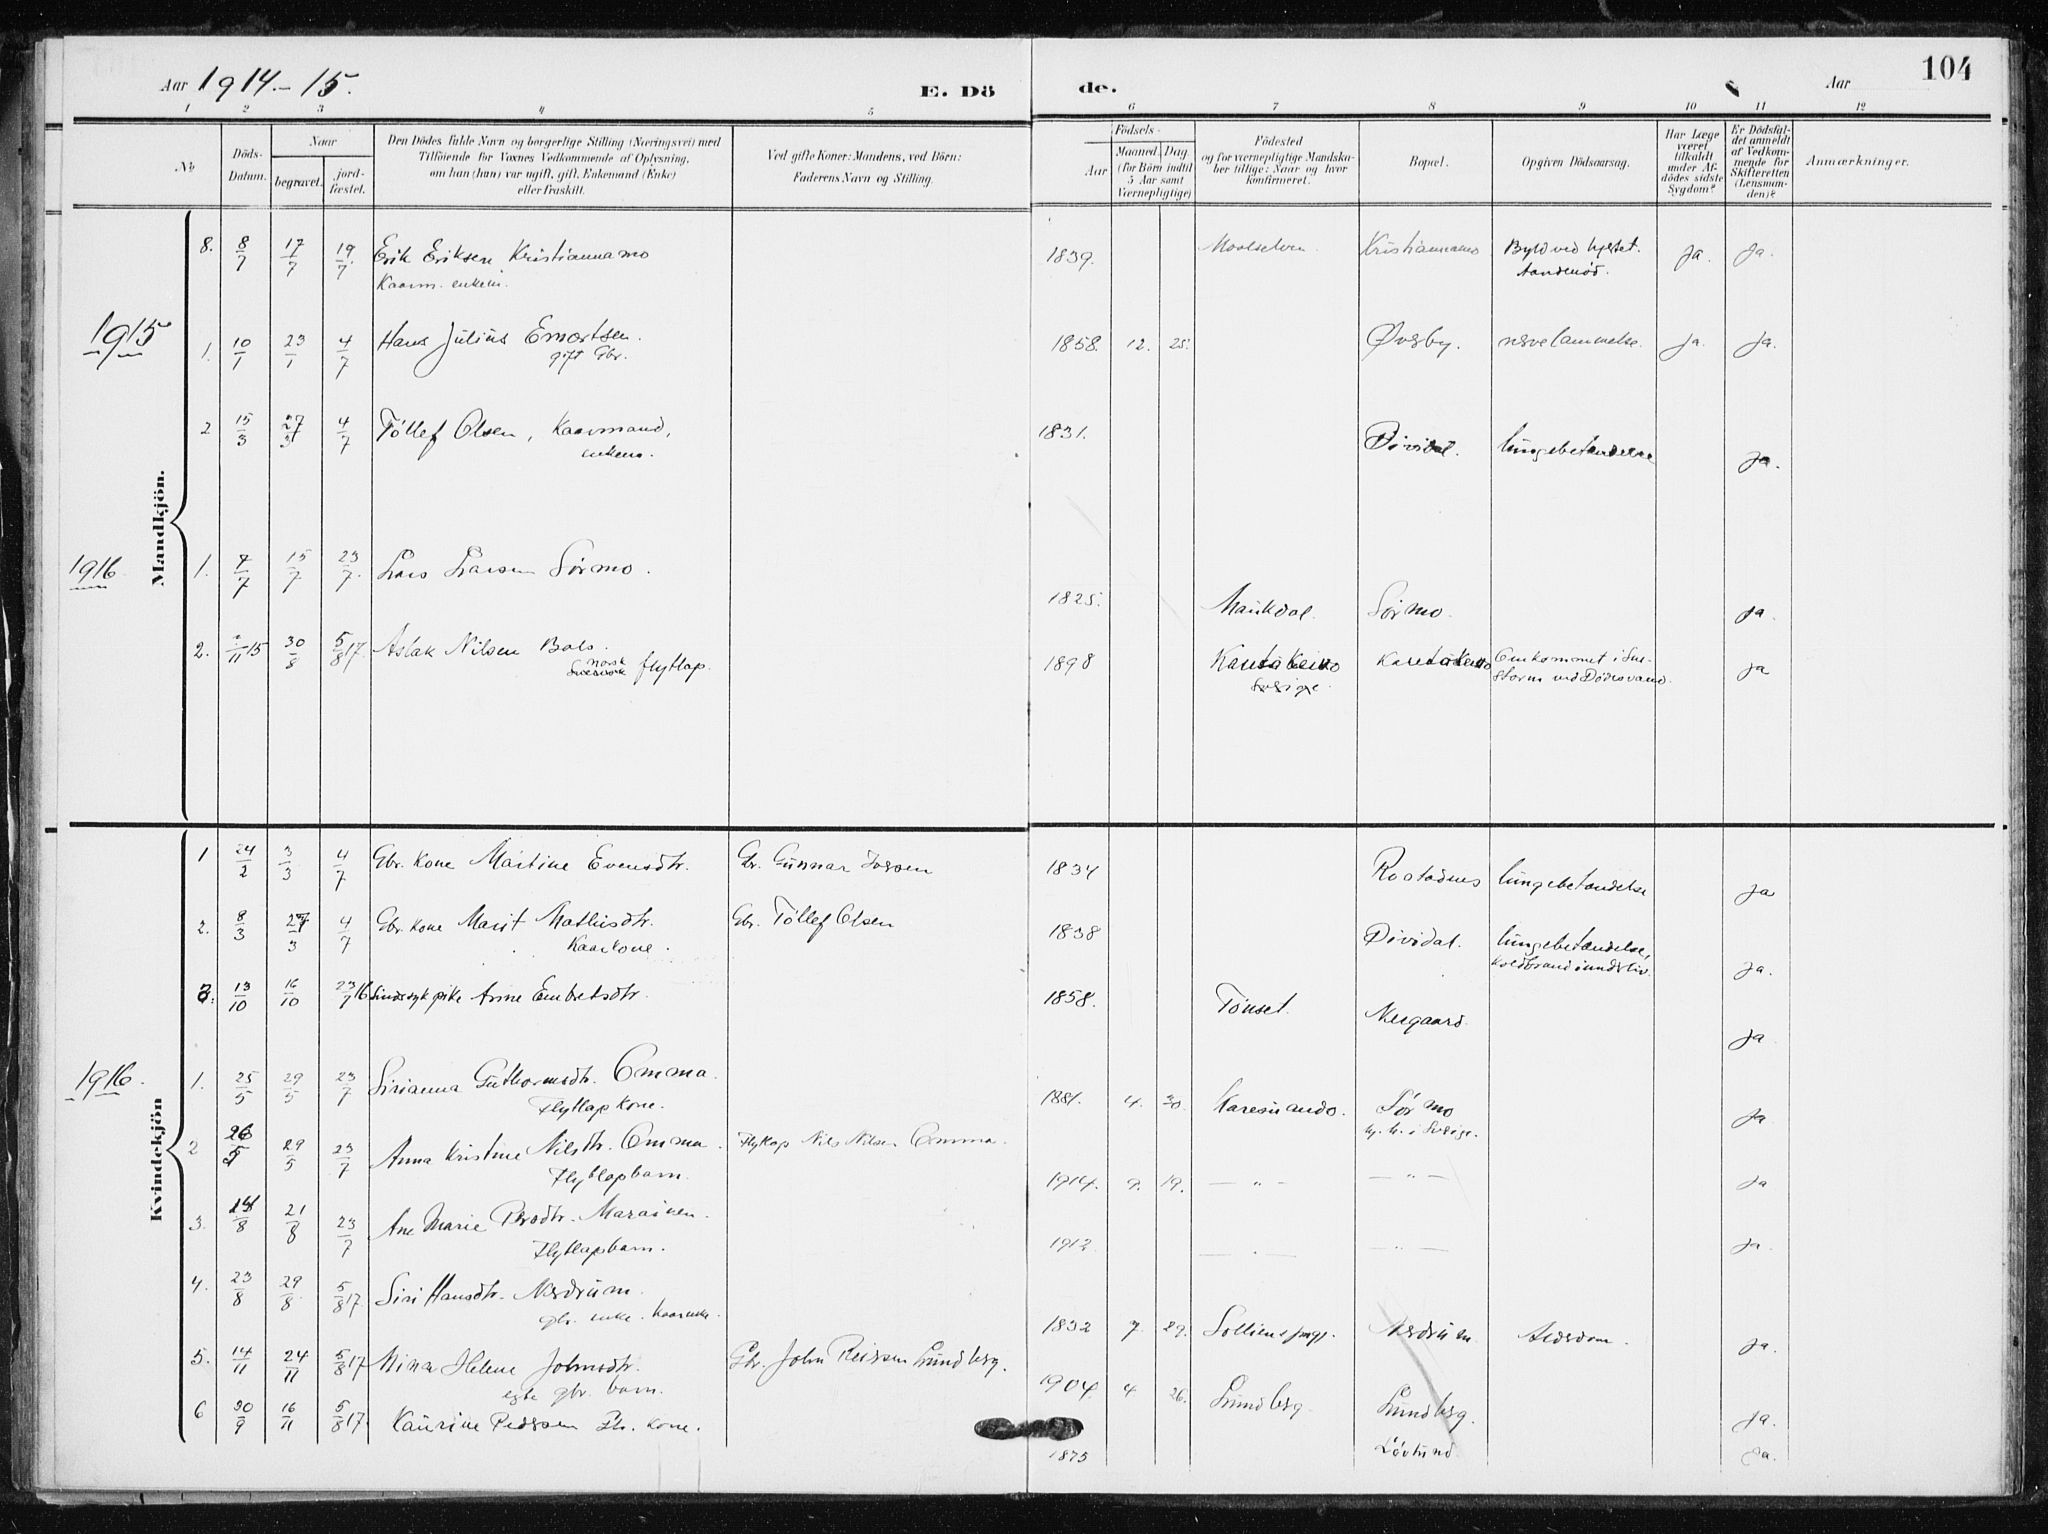 Aar 1914-15.
E. Dö
de.
Aar
104
1 2 3 4 5 6 7 8 9 10 11 12
No
Döds-Datum.
Naar
begravet.
jord-fæstet.
Den Dödes fulde Navn og borgerlige Stilling (Næringsvei) med
Tilföiende for Voxnes Vedkommende af Oplysning,
om han (hun) var ugift, gift, Enkemand (Enke)
eller fraskilt.
Ved gifte Koner: Mandens, ved Börn:
Faderens Navn og Stilling.
Födsels-
Aar
Maaned. Dag.
(for Börn indtil
5 Aar samt
Værnepligtige)
Födested
og for værnepligtige Mandska-
ber tillige: Naar og hvor
konfirmeret.
Bopæl.
Opgiven Dödsaarsag.
Har Læge
været
tilkaldt
under Af-
dödes sidste
Sygdom?
Er Dödsfal-
det anmeldt
af Vedkom-
mende for
Skifteretten
(Lensman-
den)?
Anmærkninger.
Mandkjön.
8. 8/7 17/7 19/7 Erik Eriksen Kristiannamo 1839. Maalselven Kristiannamo Byld ved hjertet. Ja. Ja.
Kaarm. enkem. Aandenød.
1915
1. 10/1 23/1 4/7 Hans Julius Emertsen. 1858. 12. 25. Øverby. nervelammelse. Ja. Ja.
gift Gbr.
2 15/3 27/3 4/7 Töllef Olsen, Kaarmand, 1831. Dividal. lungebetændelse Ja.
enkem.
1916.
1. 7/7 15/7 23/7. Lars Larsen Sörmo. 1825. Maukdal. Sörmo. Ja.
2. /11 15 30/8 5/8 17. Aslak Nilsen Bals. 1898 Kautokeino Kautokeino Omkommet i Sne- Ja
norsk
Svensk flytlap. Sverige. storm ved Dödesvand.
Kvindekjön
1 24/2 3/3 4/7 Gbr. kone Martine Evensdtr. Gbr. Gunnar Iversen 1834 Rostadnes lungebetændelse Ja
2. 8/3 27/3 4/7 Gbr. kone Marit Mathisdtr. Gbr. Töllef Olsen 1838 Dividal. lungebetændelse, Ja.
Kaarkone. koldbrand i underliv.
3. 13/10 16/10 23/7 16 Sindssyk pike Anne Embretsdtr. 1858. Tönset. Nergaard. Ja
1916.
1. 25/5 29/5 23/7 Sirianna Guthormsdtr. Omma. 1881. 4. 30. Karesuando. Sörmo Ja
Flytlapkone. i Sverige.
2 26/5 29/5 23/7 Anna Kristine Nilsdtr. Omma. Flytlap Nils Nilsen Omma. 1914. 9. 19. — " — — " — Ja
Flytlapbarn.
3. 14/8 21/8 23/7 Ane Marie Persdtr. Marainen. 1912 — " — — " — Ja.
Flytlapbarn.
4. 23/8 29/8 5/8 17. Siri Hansdtr. Nerdrum. 1832 7. 29. Solliens prgj. Nerdrum. Alderdom. Ja.
gbr. enke. Kaarenke.
5. 14/11 24/11 5/8 17 Nina Helene Johnsdtr. Gbr. John Reiersen Lundberg. 1904. 4 26. Lundberg Lundberg. Ja.
egte gbr. barn.
6 30/9 16/11 5/8 17. Kaurine Pedersen Fhr. kone. 1875 Lövlund Ja.